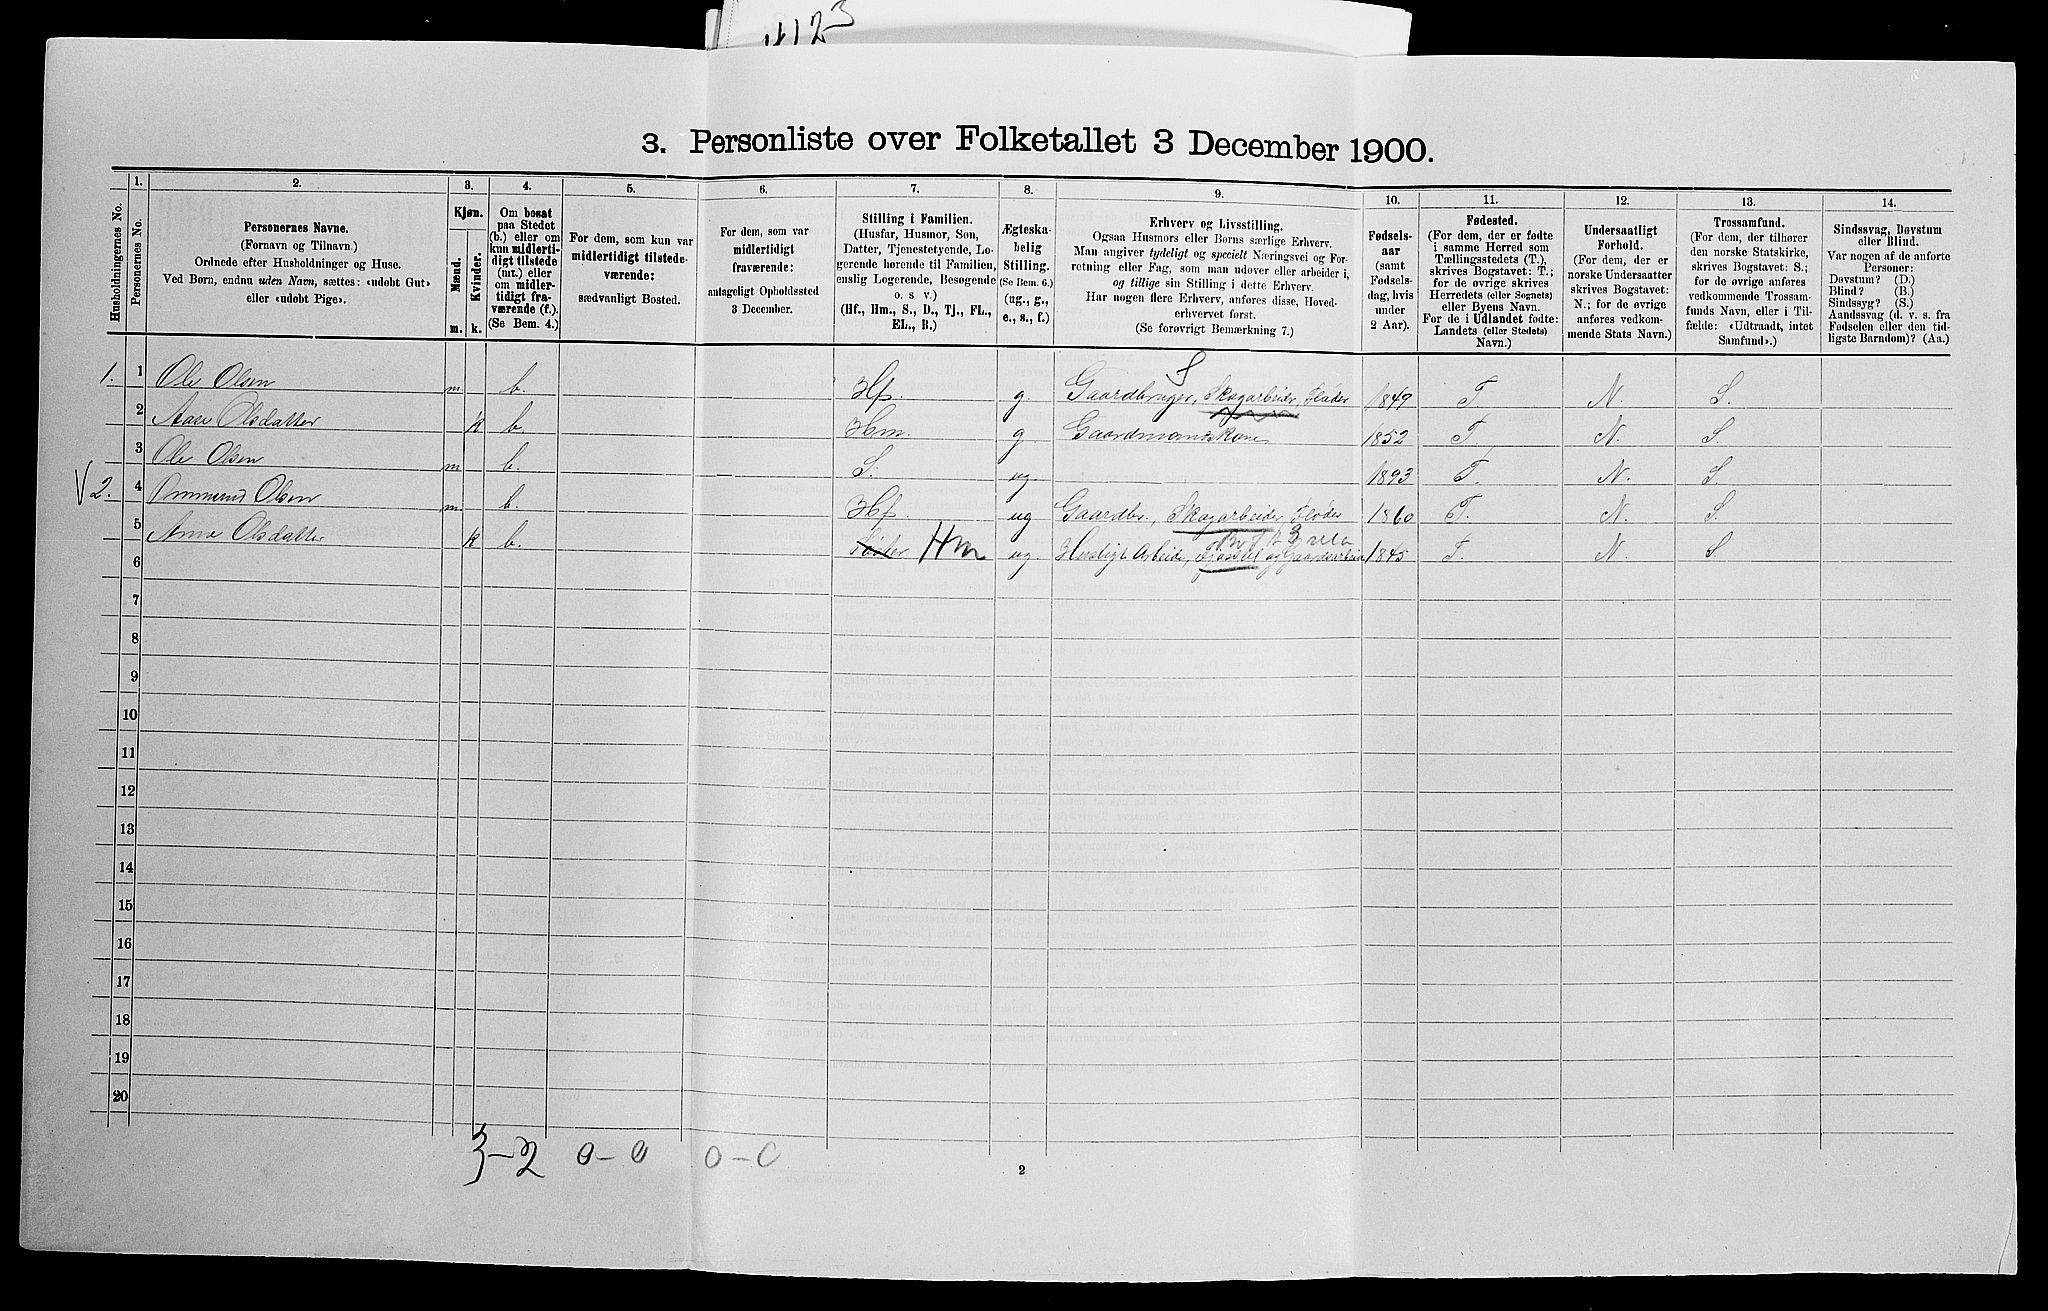 4123
3. Personliste over Folketallet 3 December 1900.
Husholdningernes No.
1.
Personernes No.
2.
Personernes Navne.
(Fornavn og Tilnavn.)
Ordnede efter Husholdninger og Huse.
Ved Børn, endnu uden Navn, sættes: «udøbt Gut»
eller «udøbt Pige».
3.
Kjøn.
Mænd.
Kvinder.
m.
k.
4.
Om bosat
paa Stedet
(b.) eller om
kun midlerti-
digt tilstede
(mt.) eller
om midler-
tidigt fra-
værende (f.).
(Se Bem. 4.)
5.
For dem, som kun var
midlertidigt tilstede-
værende:
sædvanligt Bosted.
6.
For dem, som var
midlertidigt
fraværende:
antageligt Opholdssted
3 December.
7.
Stilling i Familien.
(Husfar, Husmor, Søn,
Datter, Tjenestetyende, Lo-
gerende hørende til Familien,
enslig Logerende, Besøgende
o. s v.)
(Hf., Hm., S., D., Tj., FL.,
EL., B.)
8.
Ægteska-
belig
Stilling.
(Se Bem. 6.)
(ug., g.,
e., s., f.)
9.
Erhverv og Livsstilling.
Ogsaa Husmors eller Børns særlige Erhverv.
Man angiver tydeligt og specielt Næringsvei og For-
retning eller Fag, som man udøver eller arbeider i,
og tillige sin Stilling i dette Erhverv.
Har nogen flere Erhverv, anføres disse, Hoved-
erhvervet først.
(Se forøvrigt Bemærkning 7.)
10.
Fødsels-
aar
(samt
Fødsels-
dag, hvis
under
2 Aar).
11.
Fødested.
(For dem, der er fødte
i samme Herred som
Tællingsstedets (T.),
skrives Bogstavet: T.;
for de øvrige skrives
Herredets (eller Sognets)
eller Byens Navn.
For de i Udlandet fødte:
Landets (eller Stedets)
Navn.)
12.
Undersaatligt
Forhold.
(For dem, der er
norske Undersaatter
skrives Bogstavet:
N.; for de øvrige
anføres vedkom-
mende Stats Navn.)
13.
Trossamfund.
(For dem, der tilhører
den norske Statskirke,
skrives Bogstavet: S.;
for de øvrige anføres
vedkommende Trossam-
funds Navn, eller i Til-
fælde: «Udtraadt, intet
Samfund».)
14.
Sindssvag, Døvstum
eller Blind.
Var nogen af de anførte
Personer:
Døvstum? (D.)
Blind? (B.)
Sindssyg? (S.)
Aandssvag (d. v. s. fra
Fødselen eller den tid-
ligste Barndom)? (Aa.)
S
1. 1 Ole Olsen m b. Hf. g. Gaardbruger, Skogarbeider, Fløder 1849 T. N. S.
2 Aase Olsdatter k b. Hm. g Gaardmandskone 1852 T N. S.
3 Ole Olsen m b. S. ug. 1893 T. N. S.
V 2. 4 Ommund Olsen m. b. Hf. ug Gaardbr., Skogarbeider, Fløder 1860 T. N. S.
5 Anne Olsdatter k b. Søster Hm ug. Husligt Arbeide, Fjøsstel og Gaardsarbeide 1845 T. N. S.
6
7
8
9
10
11
12
13
14
15
16
17
18
19
20
3-2 0-0 0-0
2